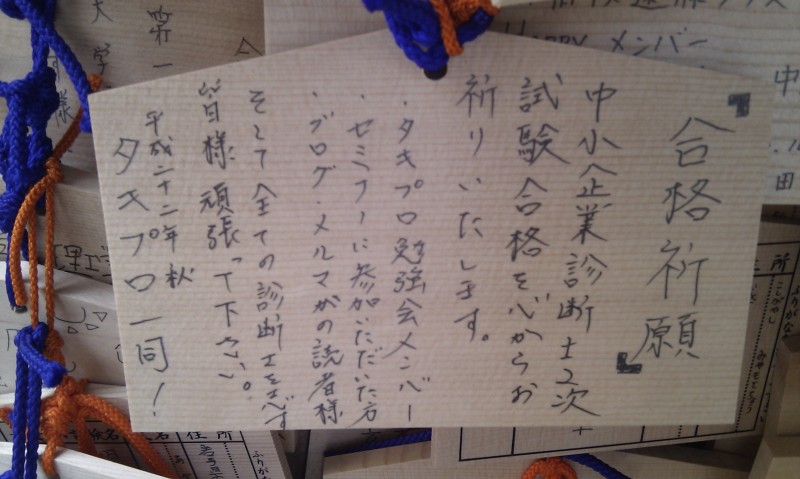 『合格祈願』
中小企業診断士2次
試験合格を心からお
祈りいたします。
・タキプロ勉強会メンバー
・セミナーに参加いただいた方
・ブログ・メルマガの読者様
そして全ての診断士を志す
皆様頑張って下さい。
平成二十二年秋
タキプロ一同!
Happy メンバー
中
田
第一
大学
様
理工学
住所
ふりがな
所
ふりがな